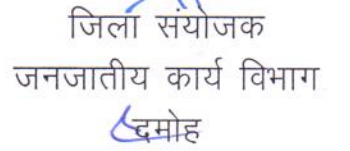 जिला संयोजक
जनजातीय कार्य विभाग
दमोह